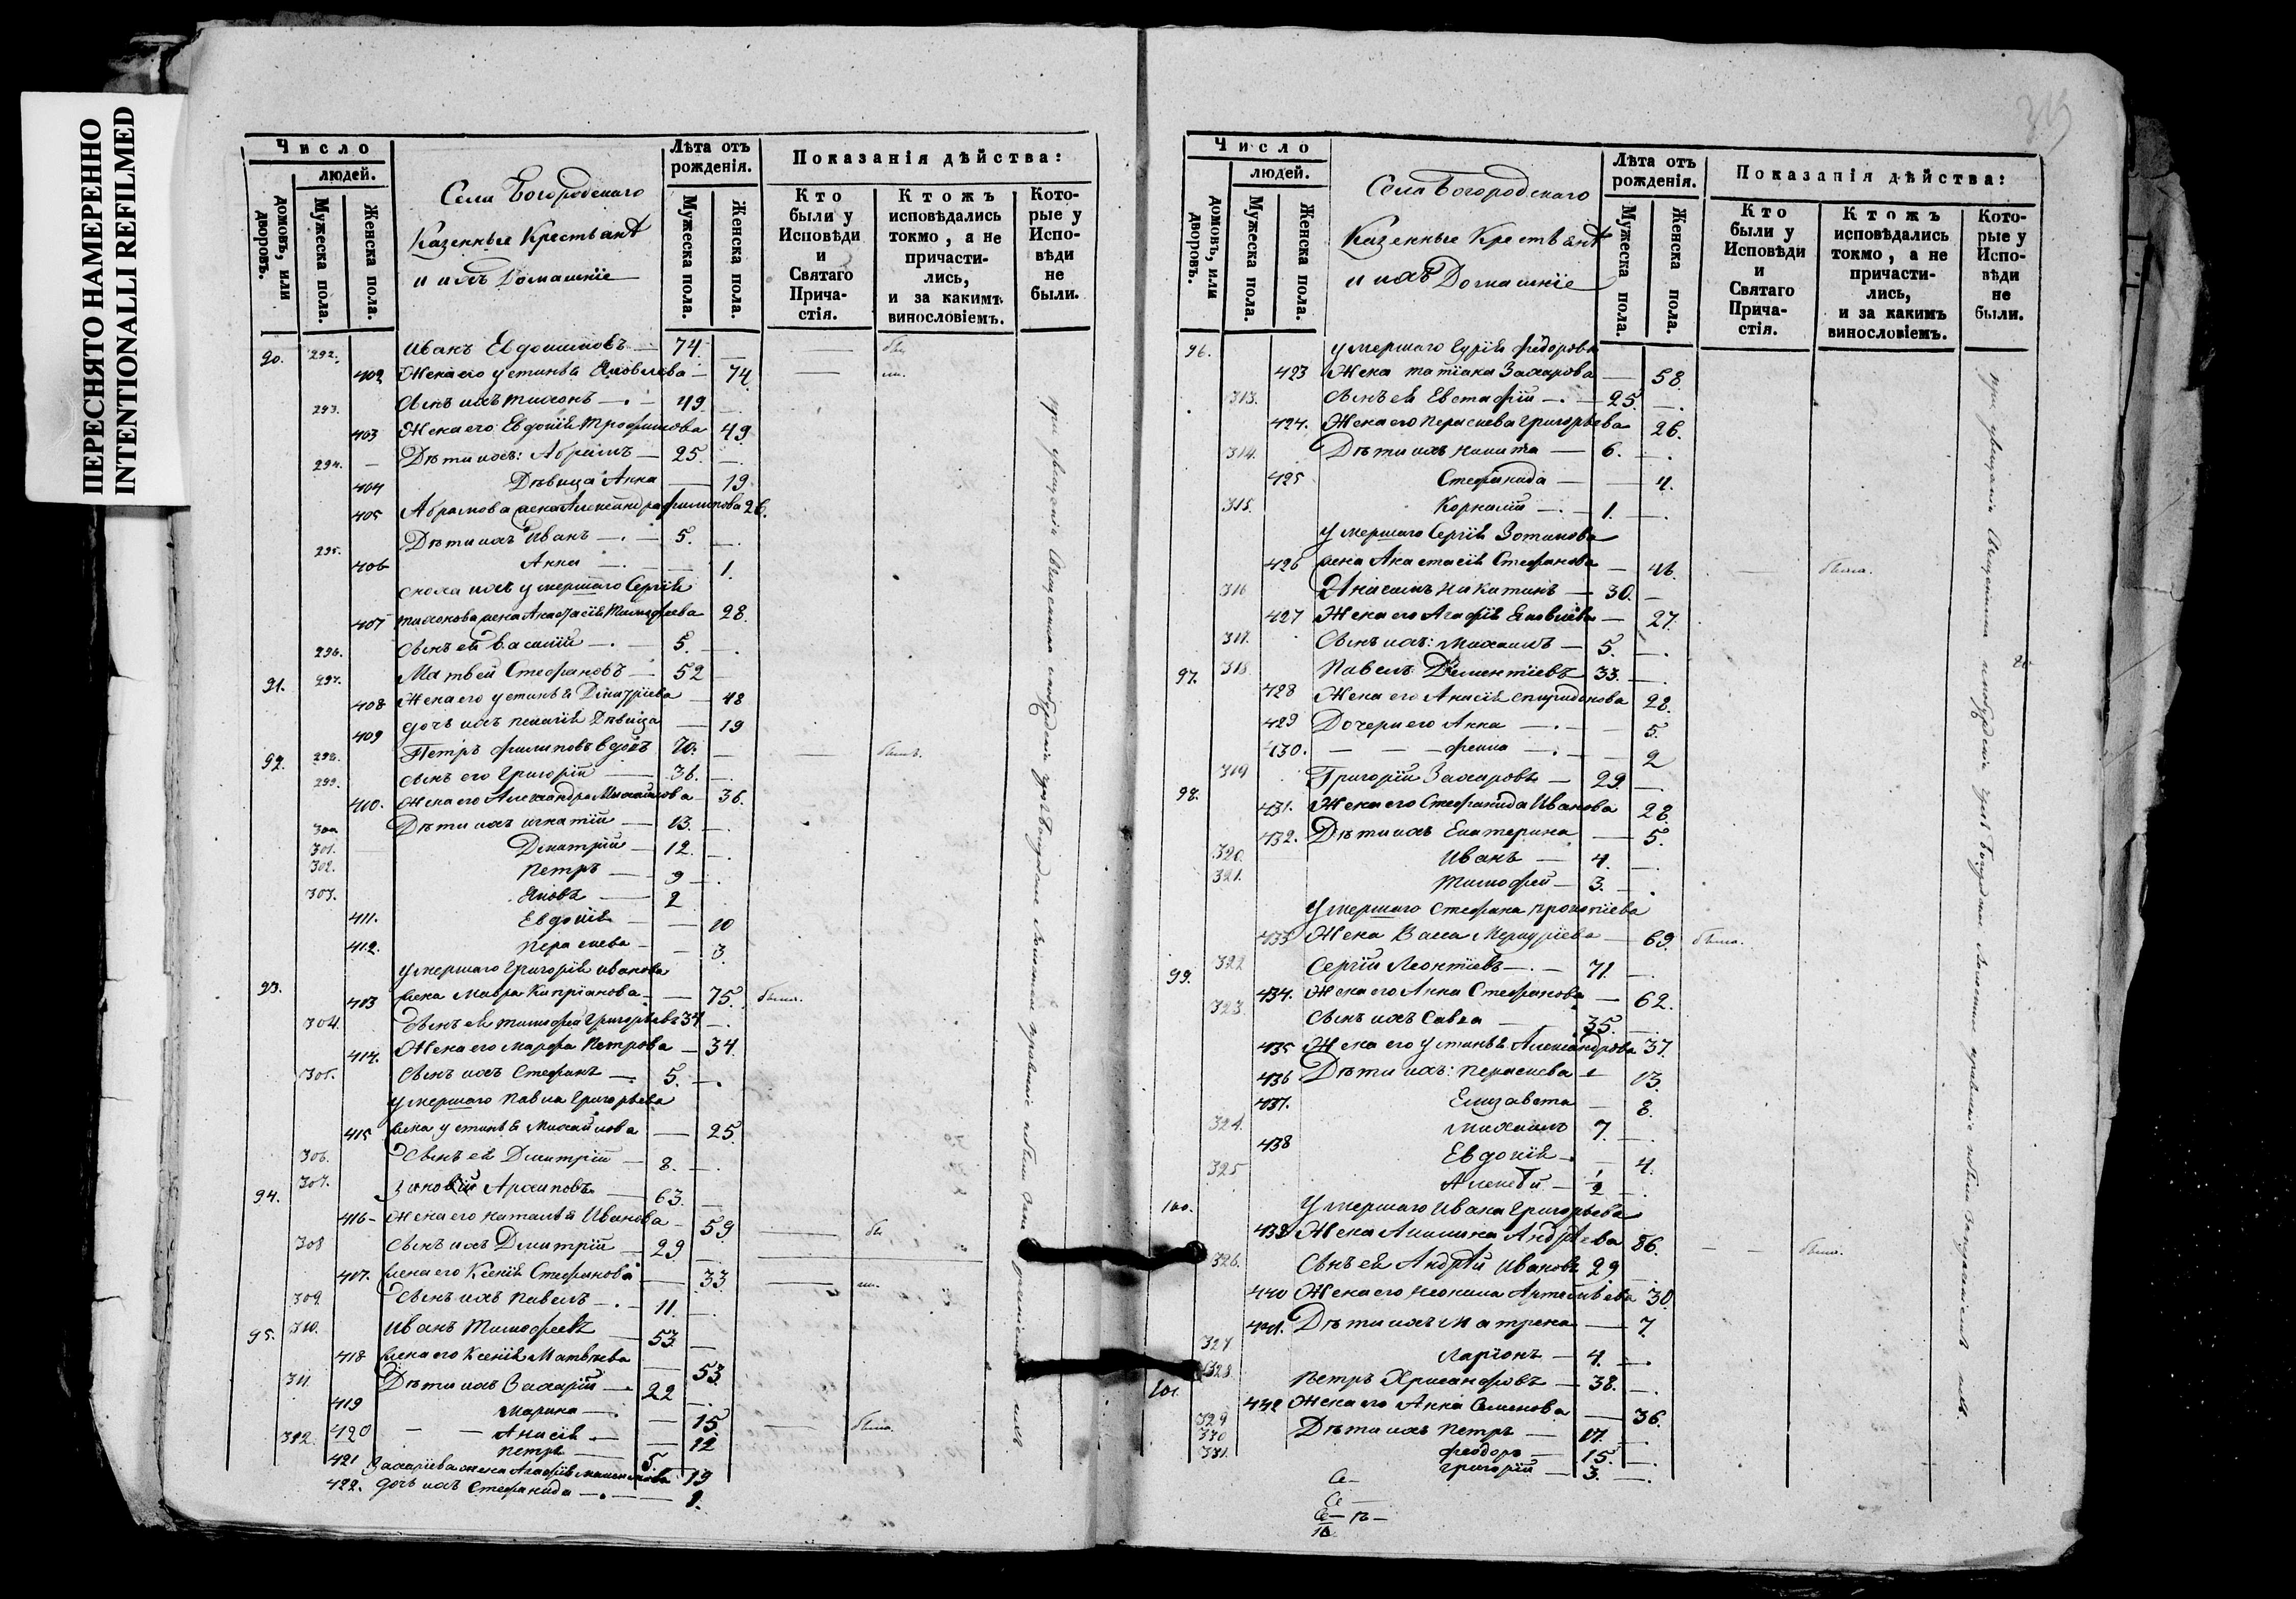 ПЕРЕСНЯТО НАМЕРЕННО
INTENTIONALLI REFILMED
Число
людей.
домовъ, или дворовъ.
Мужеска пола.
Женска пола.
Села Богородскаго
Казенные Крестьянѣ
и ихъ Домашніе
Лѣта отъ рожденія.
Мужеска пола.
Женска пола.
Показанія дѣйства:
Кто были у Исповѣди и Святаго Прича-стія.
Ктожъ исповѣдались токмо, а не причасти-лись, и за какимъ винословіемъ.
Кото-рые у Испо-вѣди не были.
90. 292. Иванъ Евдокимовъ — 74.
402 Жена его Устинья Яковлева — 74.
293. Сынъ ихъ Тихонъ — 49.
403 Жена его Евдокія Трофимова 49
294. Дѣти ихъ: Абрамъ — 25.
404 Дѣвица Анна — 19
405 Абрамова жена Александра Филипова 26.
295. Дѣти ихъ Иванъ — 5.
406 Анна — 1.
сноха ихъ умершаго Сергія
407 Тихонова жена Анастасія Тимофеева 28.
296. Сынъ ей Василій — 5.
91. 297. Матвей Стефановъ — 52
408 Жена его Устинья Дмитріева — 48
409 дочь ихъ Пелагія Дѣвица — 19
92. 298. Петръ Филиповъ вдовъ 70. — былъ.
299. сынъ его Григорій — 36.
410. Жена его Александра Михайлова 36.
300 Дѣти ихъ Игнатій — 13.
301. Дмитрій — 12.
302. Петръ — 9
303. Яковъ — 2
411. Евдокія — 10
412. Перасцева — 3.
93. умершаго Григорія Иванова
413 жена Мавра Кипріанова — 75. была.
304. Сынъ ей Тимофей Григорьевъ 34
414. Жена его Марфа Петрова — 34.
305. Сынъ ихъ Стефанъ — 5.
умершаго Павла Григорьева
415 жена Устинья Михайлова — 25.
306. Сынъ ей Дмитрій — 8.
94. 307. Зиновій Архиповъ — 63.
416 Жена его Наталья Иванова — 59
308 Сынъ ихъ Дмитрій — 29
417. жена его Ксенія Стефанова — 33.
309 Сынъ ихъ Павелъ — 11.
95. 310. Иванъ Тимофеевъ — 53
418 жена его Ксенія Матвѣева — 53.
311 Дѣти ихъ Захарій — 22
419 Марина — 15 была.
420 Анисія — 12
312. Петръ — 5.
421 Захаріева жена Агафія 19
422. дочь ихъ Стефанида — 1.
Число
людей.
домовъ, или дворовъ.
Мужеска пола.
Женска пола.
Села Богородскаго
Казенные Крестьянѣ
и ихъ Домашніе
Лѣта отъ рожденія.
Мужеска пола.
Женска пола.
Показанія дѣйства:
Кто были у Исповѣди и Святаго Прича-стія.
Ктожъ исповѣдались токмо, а не причасти-лись, и за какимъ винословіемъ.
Кото-рые у Испо-вѣди не были.
96. умершаго Гурія Федорова
423 Жена Татіана Захарова — 58.
313. Сынъ ей Евстафій — 25.
424. Жена его Перасцева Григорьева 26.
314. Дѣти ихъ Никита — 6.
425 Стефанида — 4.
315. Корнилій — 1.
умершаго Сергія Зотикова
426 жена Анастасія Стефанова — 46. была.
316 Анисимъ Никитинъ — 30.
427 Жена его Агафія Яковлева — 27.
317. Сынъ ихъ: Михаилъ — 5.
97. 318 Павелъ Дементіевъ 33.
428 Жена его Анисія Спиридонова 28.
429 Дочери его Анна — 5.
430. Фекла — 2
98. 319 Григорій Захаровъ — 29.
431. Жена его Стефанида Иванова 28.
432. Дѣти ихъ Екатерина — 5.
320. Иванъ — 4.
321. Тимофей — 3.
умершаго Стефана Прокопіева
433 Жена Васса Меркуріева — 69. была.
99. 322 Сергій Леонтіевъ — 71.
434. Жена его Анна Стефанова — 62.
323. Сынъ ихъ Савва — 35.
435 Жена его Устинья Александрова 37.
436 Дѣти ихъ: Перасцева — 13.
437. Елизавета — 8.
324. Михаилъ 7.
438 Евдокія — 4.
325 Алексѣй — 1/2
100. Умершаго Ивана Григорьева
439 Жена Акилина Андрѣева 86. была.
326. Сынъ ей Андрей Ивановъ 29
440 Жена его Неонила Артемьева 30
441. Дѣти ихъ Матрена — 7.
327. Ларіонъ — 4.
101. 328. Петръ Хрисанфовъ — 38.
442 Жена его Анна Семенова — 36.
329 Дѣти ихъ Петръ — 17.
330 Феодоръ — 15.
331. Григорій — 3.